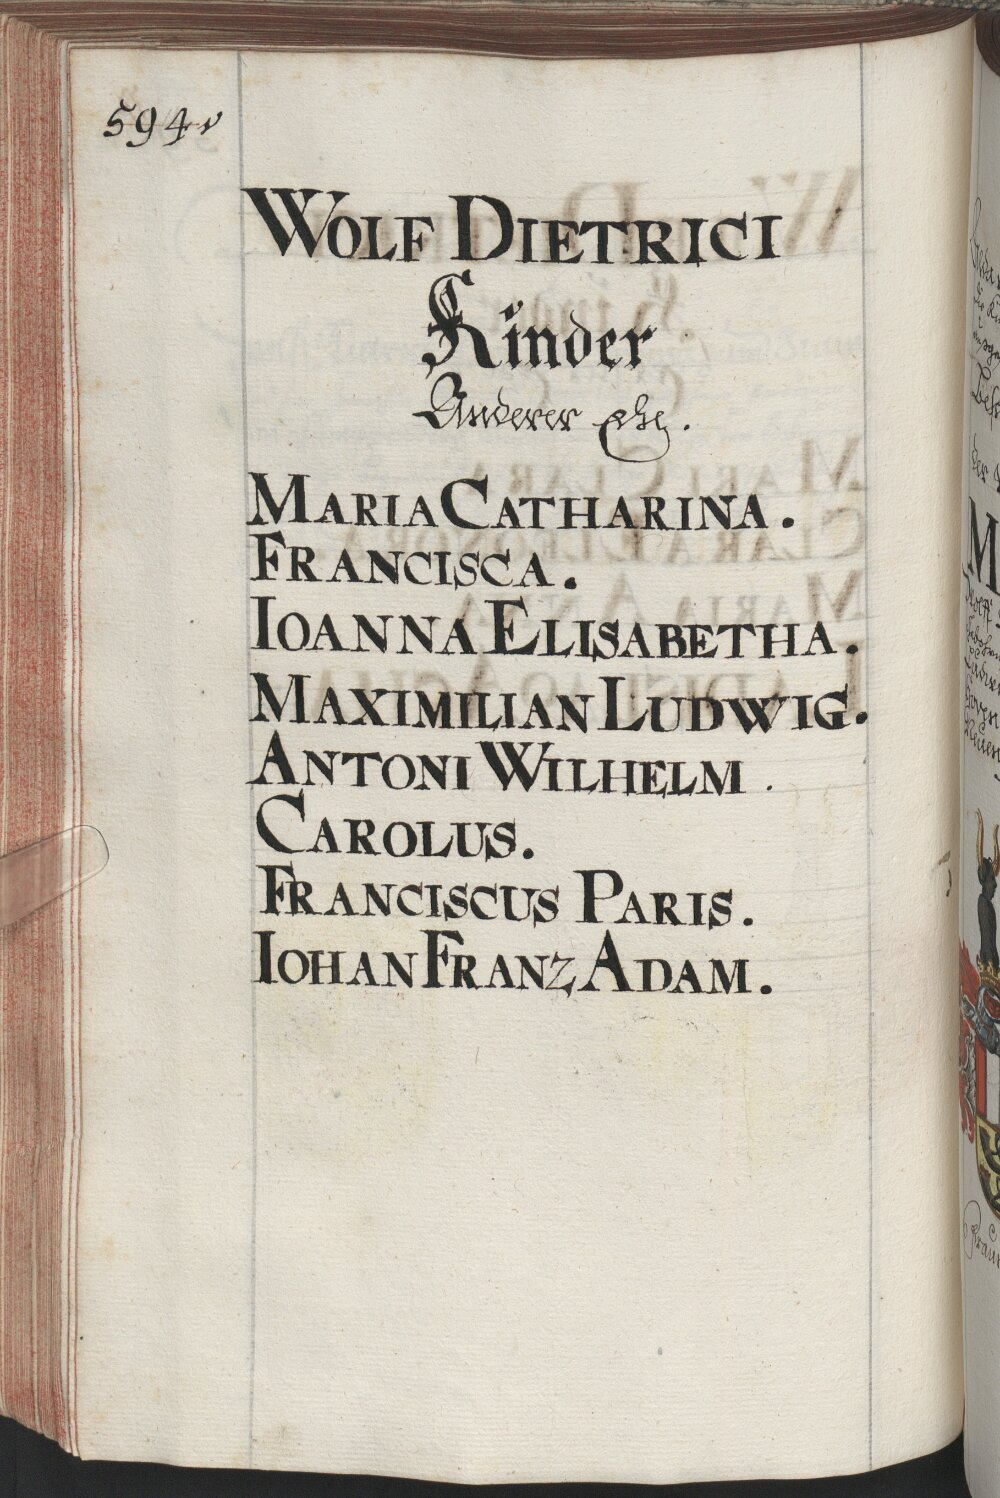 594v
WOLF DIETRICI
Kinder
Anderer Ehe.
MARIA CATHARINA.
FRANCISCA.
IOANNA ELISABETHA.
MAXIMILIAN LUDWIG.
ANTONI WILHELM.
CAROLUS.
FRANCISCUS PARIS.
IOHAN FRANZ ADAM.